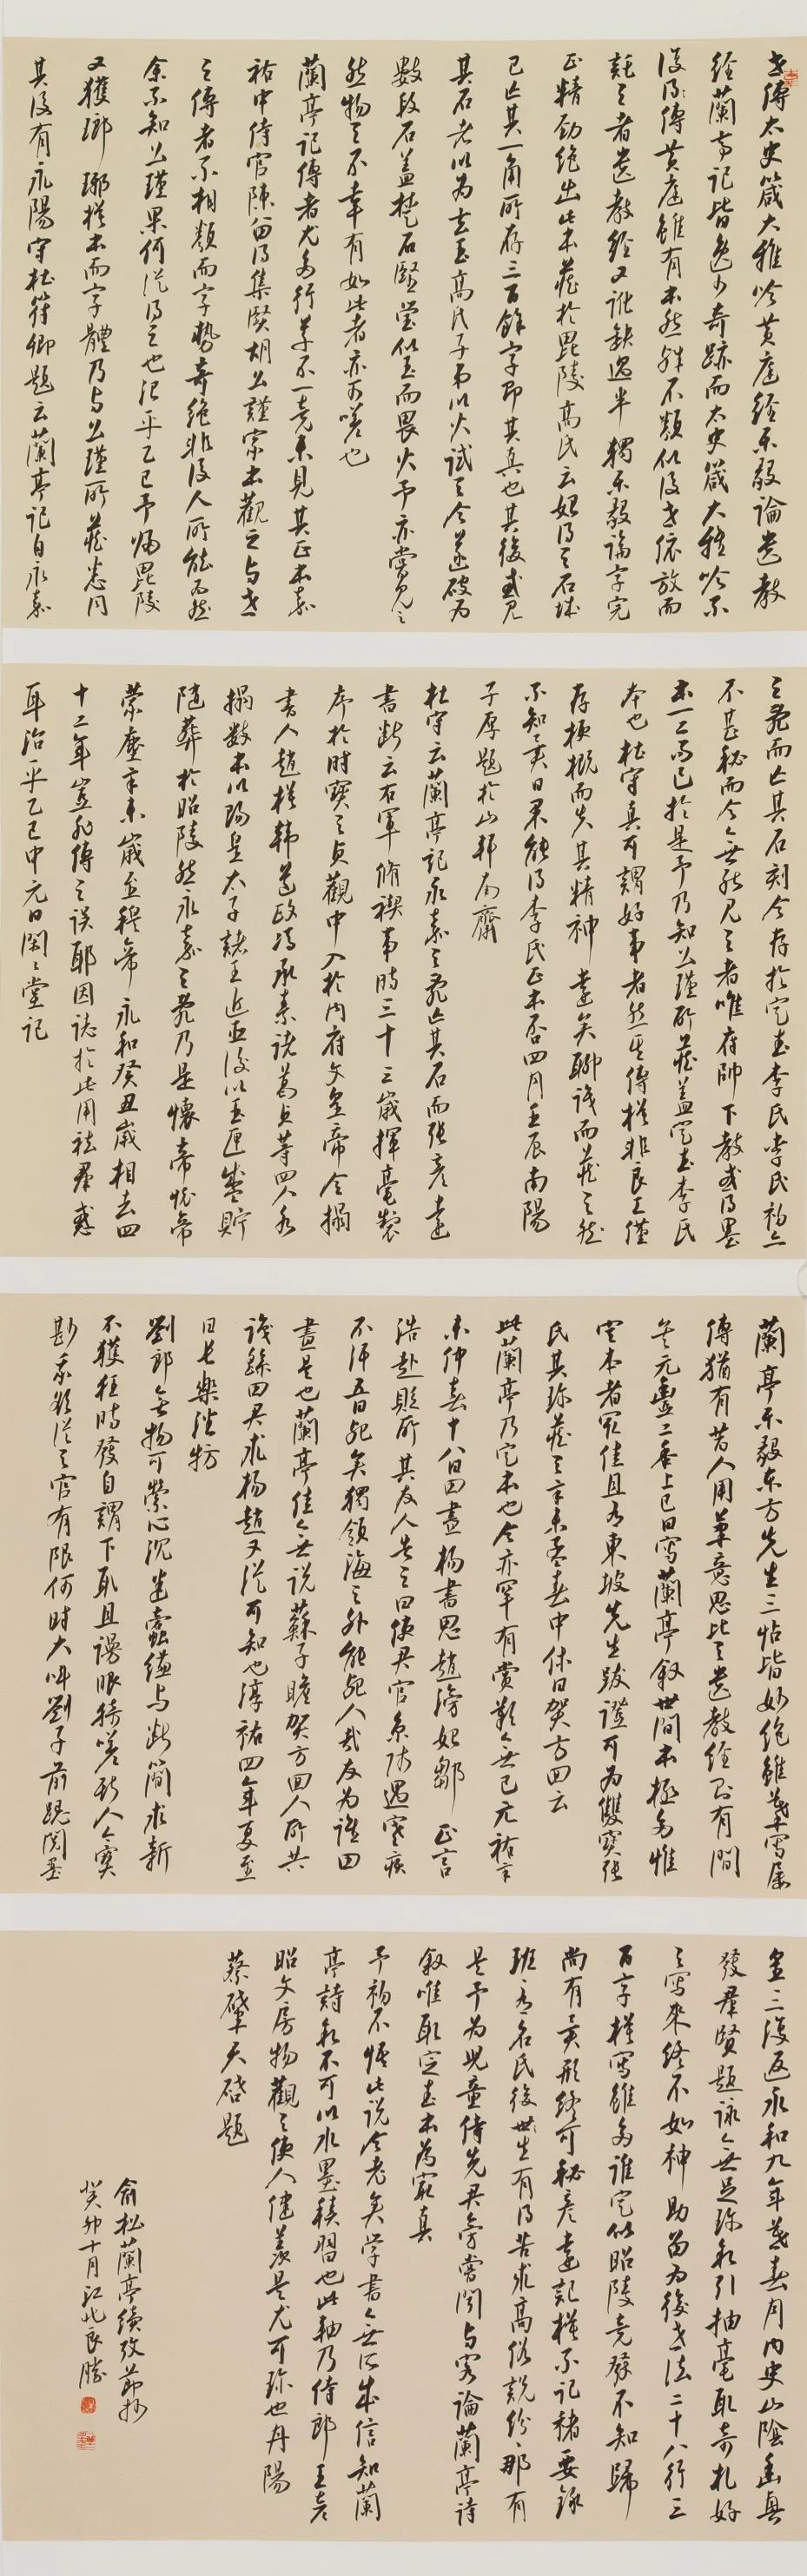 世傳太史箴大雅吟黃庭經樂毅論遺教
經蘭亭記皆逸少奇跡而太史箴大雅吟不
復傳黃庭雖有本然殊不類似後世依放而
託之者遺教經又訛缺過半獨樂毅論字完
而精勁絕出此本藏於毘陵高氏云始得之石城
已亡其一角所存三百餘字即其真也其後或見
其石老以為玉高氏子弟以火試之今遂破為
數段石蓋楚石堅瑩似玉而畏火予亦嘗見之
然物之不幸有如此者亦可嗟也
蘭亭記傳者尤多行草不一竟未見其正本嘉
祐中侍官陳留得集賢胡公謹家本觀之与世
之傳者不相類而字勢奇絕非後人所能為然
余不知公瑾果何從得之也治平乙巳予歸毘陵
又獲瑯琊模本而字體乃与公瑾所藏悉同
其後有永陽守杜符卿題云蘭亭記自永嘉
之亂而亡其石刻今存於定武李氏李氏初亦
不甚秘而今無能見之者唯府帥下教或得墨
本一二而已於是予乃知公瑾所藏蓋定武李氏
本也杜守真可謂好事者然其傳模非良工僅
存梗概而失其精神遠矣聊識而藏之然
不知異日果能得李氏正本否四月壬辰南陽
子厚題於山軒南齋
杜守云蘭亭記永嘉之亂亡其石而張彥遠
書斷云右軍脩禊事時三十三歲揮毫製
序於時寶之貞觀中入於內府文皇帝令搨
書人趙模韓道政馮承素諸葛貞等四人各
搨數本以賜皇太子諸王近臣後以玉匣盛貯
隨葬於昭陵然永嘉之亂乃是懷帝愍帝
蒙塵辛未歲至穆帝永和癸丑歲相去四
十二年豈非傳之誤耶因誌於此用祛群惑
耳治平乙巳中元日閑々堂記
蘭亭樂毅東方先生三帖皆妙絕雖摹寫屢
傳猶有昔人用筆意思比之遺教經則有間
矣元豐二年上巳日寫蘭亭敘世間本極多惟
定本者冣佳且有東坡先生跋證可為雙寶張
氏其珍藏之辛未孟春中休日賀方回云
此蘭亭乃定本也今亦罕有賞歎無已元祐辛
未仲春十八日田晝楊書思趙滂如鄒正言
浩赴貶所其友人告之曰使君官京師遇寒疾
不汗五日死矣獨嶺海之外能死人哉友為誰田
晝是也蘭亭佳無說蘇子瞻賀方回人所共
識餘四君求楊趙又從可知也淳祐四年夏至
日長樂潘牥
劉郎無物可縈心沉迷蠹縑与斷簡求新
不獲狂時發自謂下取且謾眼猗嗟斯人今實
尠我欲從之官有限何時大叫劉子前跪閱墨
皇三復返永和九年暮春月內史山陰幽興
發群賢題詠無足珍敘引抽毫取奇札好
之寫來終不如神助留為後世法二十八行三
百字模寫雖多誰定似昭陵竟發不知歸
尚有異形終可秘彥遠記模不記褚要錄
班々名氏後世生有得苦求高俗說紛々那有
是予為兒童侍先君旁嘗聞与客論蘭亭詩
敘唯取定武本為冣真
予初不悟此說今老矣學書無所成信知蘭
亭詩敘不可以水墨積習也此軸乃侍郎王彥
昭文房物觀之使人健羨是尤可珍也丹陽
蔡肇天啓題
俞松蘭亭續攷節抄
癸卯十月江北良勝